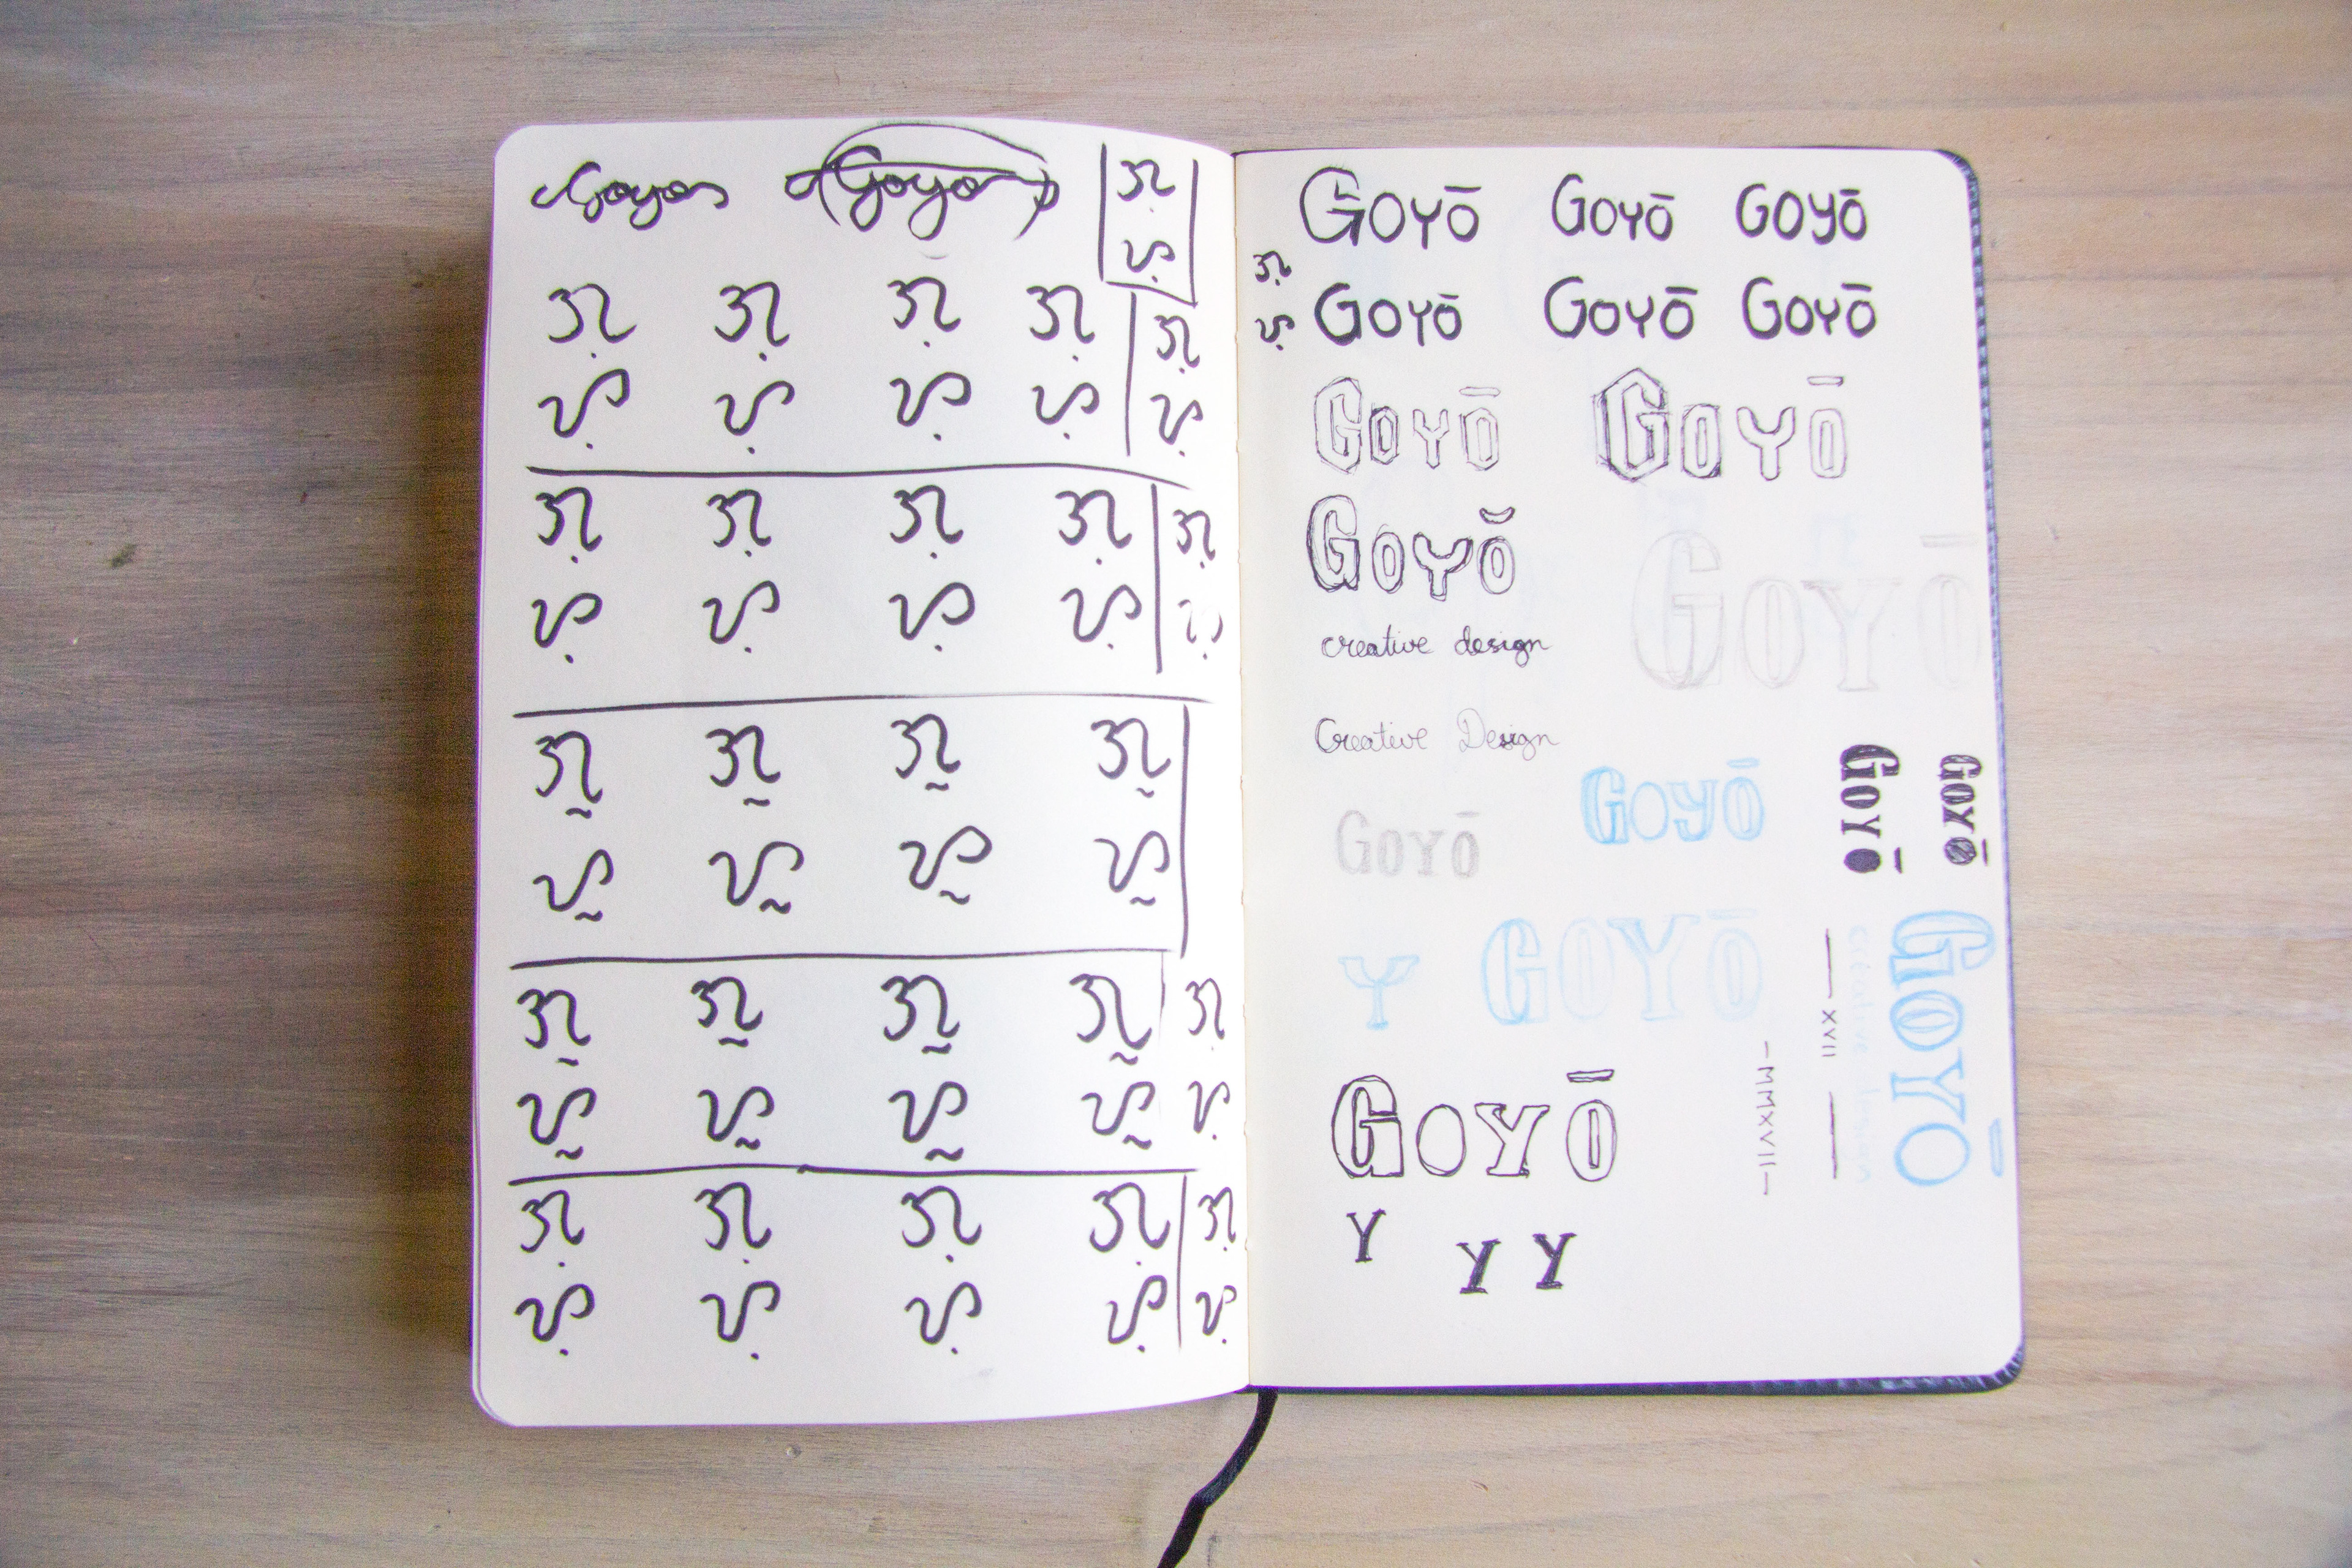 Goyo Goyo ᜄᜓ
ᜌᜓ
ᜄᜓ ᜄᜓ ᜄᜓ ᜄᜓ ᜄᜓ
ᜌᜓ ᜌᜓ ᜌᜓ ᜌᜓ ᜌᜓ
ᜄᜓ ᜄᜓ ᜄᜓ ᜄᜓ ᜄᜓ
ᜌᜓ ᜌᜓ ᜌᜓ ᜌᜓ ᜌᜓ
ᜄᜓ ᜄᜓ ᜄᜓ ᜄᜓ
ᜌᜓ ᜌᜓ ᜌᜓ ᜌᜓ
ᜄᜓ ᜄᜓ ᜄᜓ ᜄᜓ ᜄᜓ
ᜌᜓ ᜌᜓ ᜌᜓ ᜌᜓ ᜌᜓ
ᜄᜓ ᜄᜓ ᜄᜓ ᜄᜓ ᜄᜓ
ᜌᜓ ᜌᜓ ᜌᜓ ᜌᜓ ᜌᜓ
Goyō Goyō Goyō
ᜄᜓ
ᜌᜓ Goyō Goyō Goyō
Goyō Goyō
Goyŏ Goyō
creative design
Creative Design
Goyō Goyō
Goyō
Goyō
Y GOYŌ
— XVII —
creative design
GOYŌ
- MMXVII -
Goyō
Y Y Y